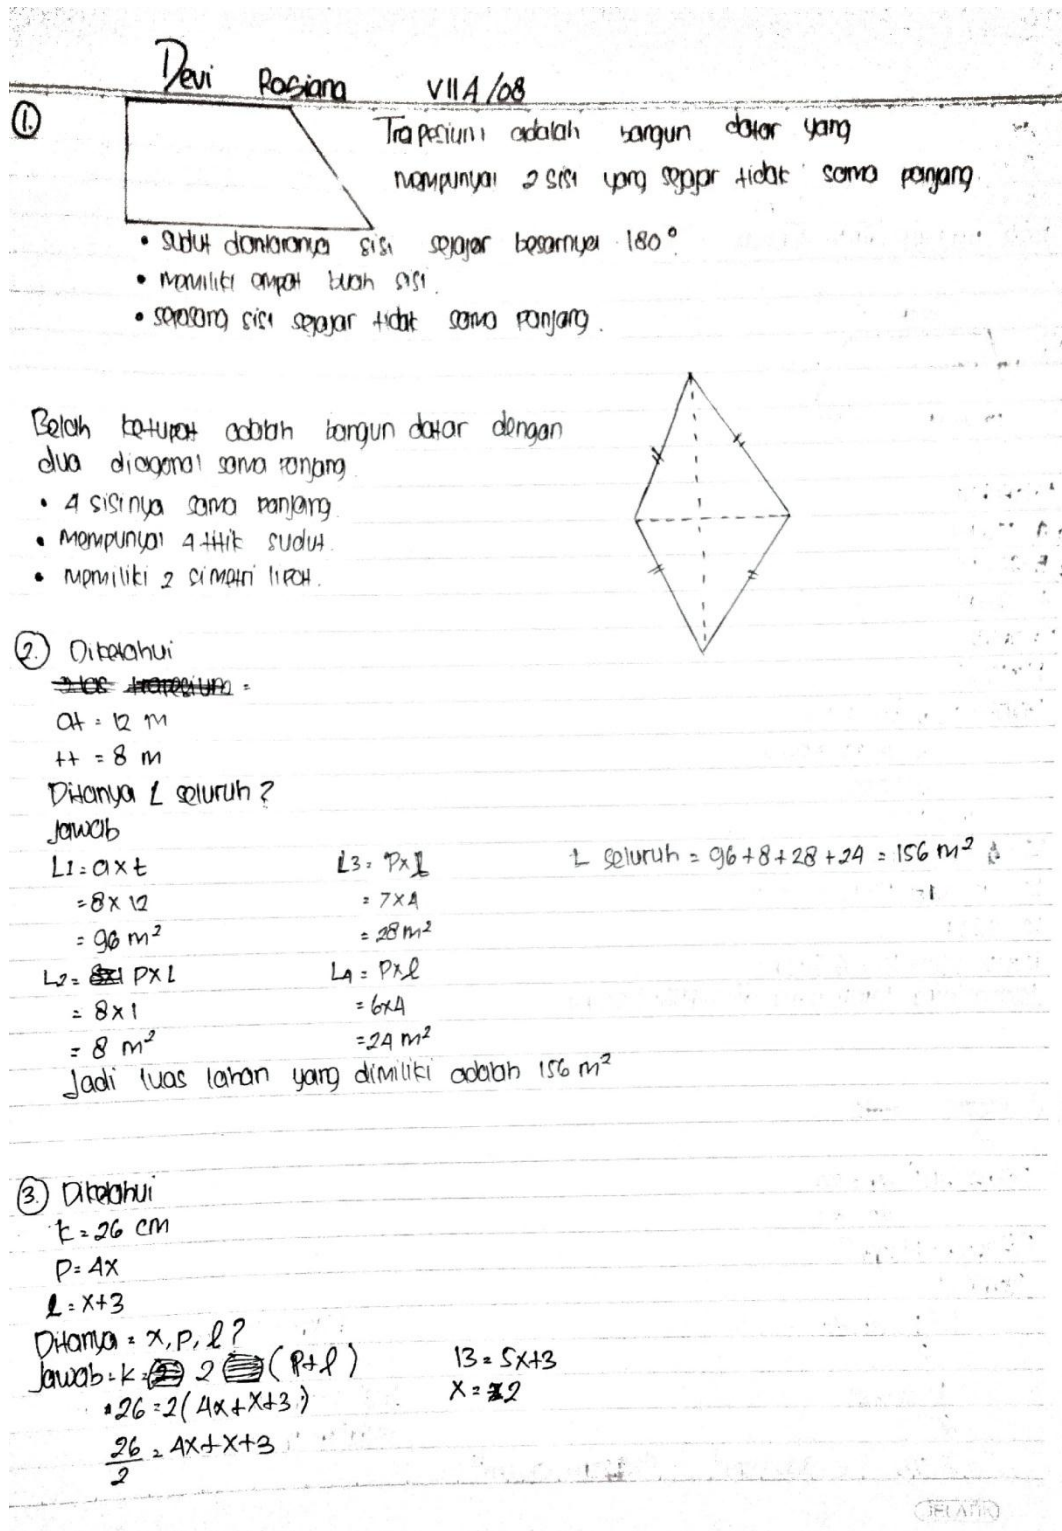 Devi Rosiana VIIA/08
①
Trapesium adalah bangun datar yang
mempunyai 2 sisi yang sejajar tidak sama panjang.
• sudut diantaranya sisi sejajar besarnya 180°
• memiliki empat buah sisi.
• sepasang sisi sejajar tidak sama panjang.
Belah ketupat adalah bangun datar dengan
dua diagonal sama panjang.
• 4 sisinya sama panjang.
• mempunyai 4 titik sudut.
• memiliki 2 simetri lipat.
②. Diketahui
at = 12 m
tt = 8 m
Ditanya L seluruh?
Jawab
L1 = a x t
= 8 x 12
= 96 m²
L2 = P x L
= 8 x 1
= 8 m²
L3 = P x l
= 7 x 4
= 28 m²
L4 = P x l
= 6x4
= 24 m²
L seluruh = 96 + 8 + 28 + 24 = 156 m²
Jadi luas lahan yang dimiliki adalah 156 m²
③. Diketahui
k = 26 cm
P = 4x
l = x+3
Ditanya = x, p, l?
Jawab = k = 2 (P+l)
26 = 2(4x+x+3)
26/2 = 4x+x+3
13 = 5x+3
x = 2